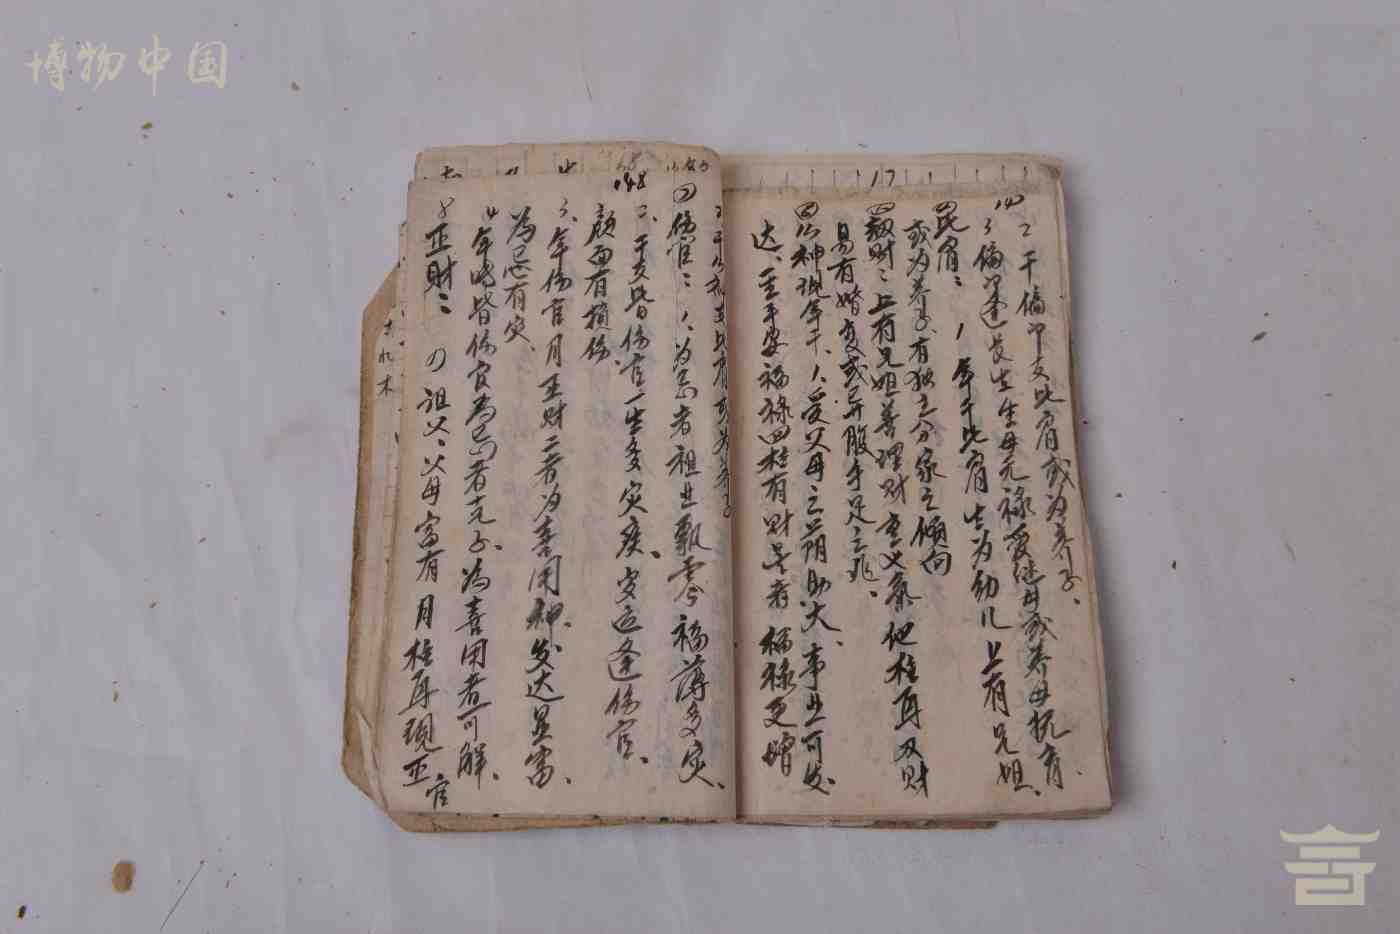 博物中国
17
2 干偏印支比肩或为养子、
3 偏印逢长生生母无禄爱继母或养母抚育、
比肩：1 年干比肩生为幼儿上有兄姐、
或为养子、有独立分家之倾向
劫财：上有兄姐善理财重义气他柱再双财
易有婚变或异腹手足之兆、
神现年干、1、受父母之荫助大、事业可发
达、一生平安福禄四柱有财星者福禄更增
148
伤官：1、为忌者祖业飘零福薄多灾、
2、干支皆伤官一生多灾疾、岁运逢伤官、
颜面有损伤、
3、年伤官月正财二者为喜用神、发达显富、
为忌有灾、
4 年时皆伤官为忌者克子、为喜用者可解、
正财：祖父、父母富有月柱再现正官